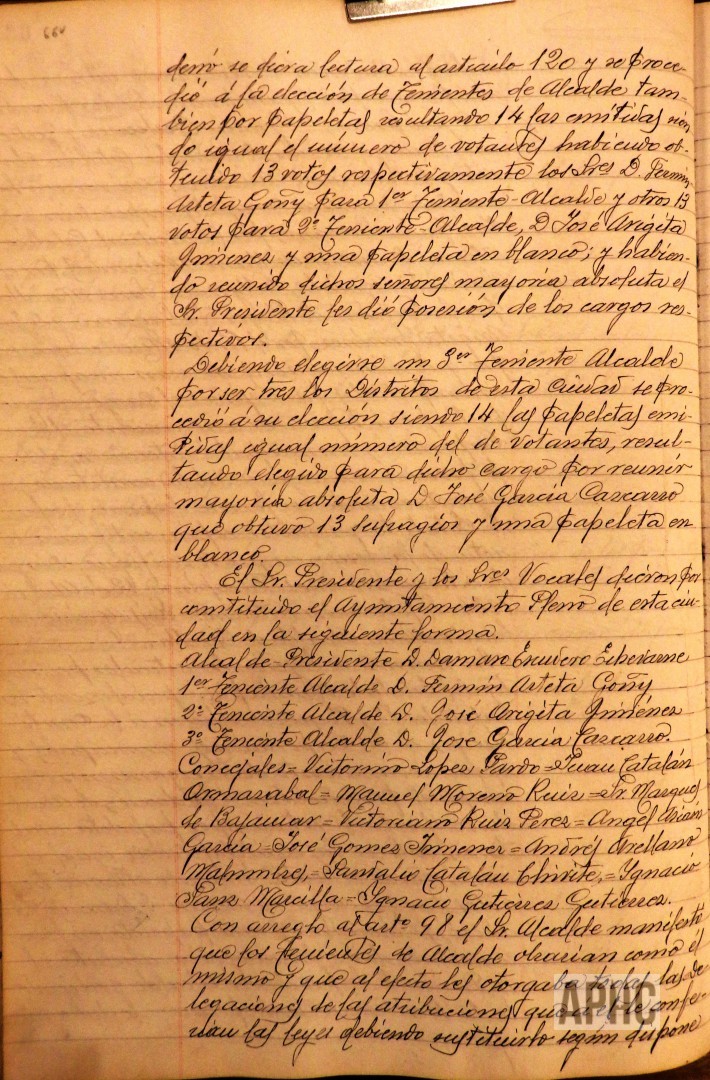 660
denó se diera lectura al artículo 120 y se proce-
dió á la elección de Tenientes de Alcalde tam-
bien por papeletas resultando 14 las emitidas sien
do igual el número de votantes habiendo ob-
tenido 13 votos respectivamente los Sres D. Fermin
Arteta Goñy para 1er Teniente-Alcalde y otros 13
votos para 2º Teniente-Alcalde, D José Arigita
Gimenez y una papeleta en blanco; y habien-
do reunido dichos señores mayoria absoluta el
Sr. Presidente les dió posesión de los cargos res-
pectivos.
Debiendo elegirse un 3er Teniente Alcalde
por ser tres los Distritos de esta Ciudad se pro-
cedió á su elección siendo 14 las papeletas emi-
tidas igual número del de votantes, resul-
tando elegido para dicho cargo por reunir
mayoria absoluta D José García Carcarro
que obtuvo 13 sufragios y una papeleta en
blanco.
El Sr. Presidente y los Sres Vocales dieron por
constituido el Ayuntamiento Pleno de esta ciu-
dad en la siguiente forma.
Alcalde-Presidente D. Damaso Escudero Echevarne
1er Teniente Alcalde D. Fermín Arteta Goñy
2º Teniente Alcalde D. José Arigita Giménez
3º Teniente Alcalde D. Jose García Carcarro.
Concejales = Victorino López Pardo = Juan Catalán
Ormazabal = Manuel Moreno Ruiz = Sr. Marques
de Bajamar = Victoriano Ruiz Perez = Angel
García = José Gomez Jimenez = Andrés Arellano
= Pantalio Catalán Chivite, = Ygnacio
Sanz Marcilla = Ignacio Gutiérrez Gutiérrez.
Con arreglo al artº 98 el Sr. Alcalde manifestó
que los Tenientes de Alcalde obrarian como él
mismo y que al efecto les otorgaba todas las de
legaciones de las atribuciones que á él le confe-
rian las leyes debiendo sustituirlo segun dispone
APHC